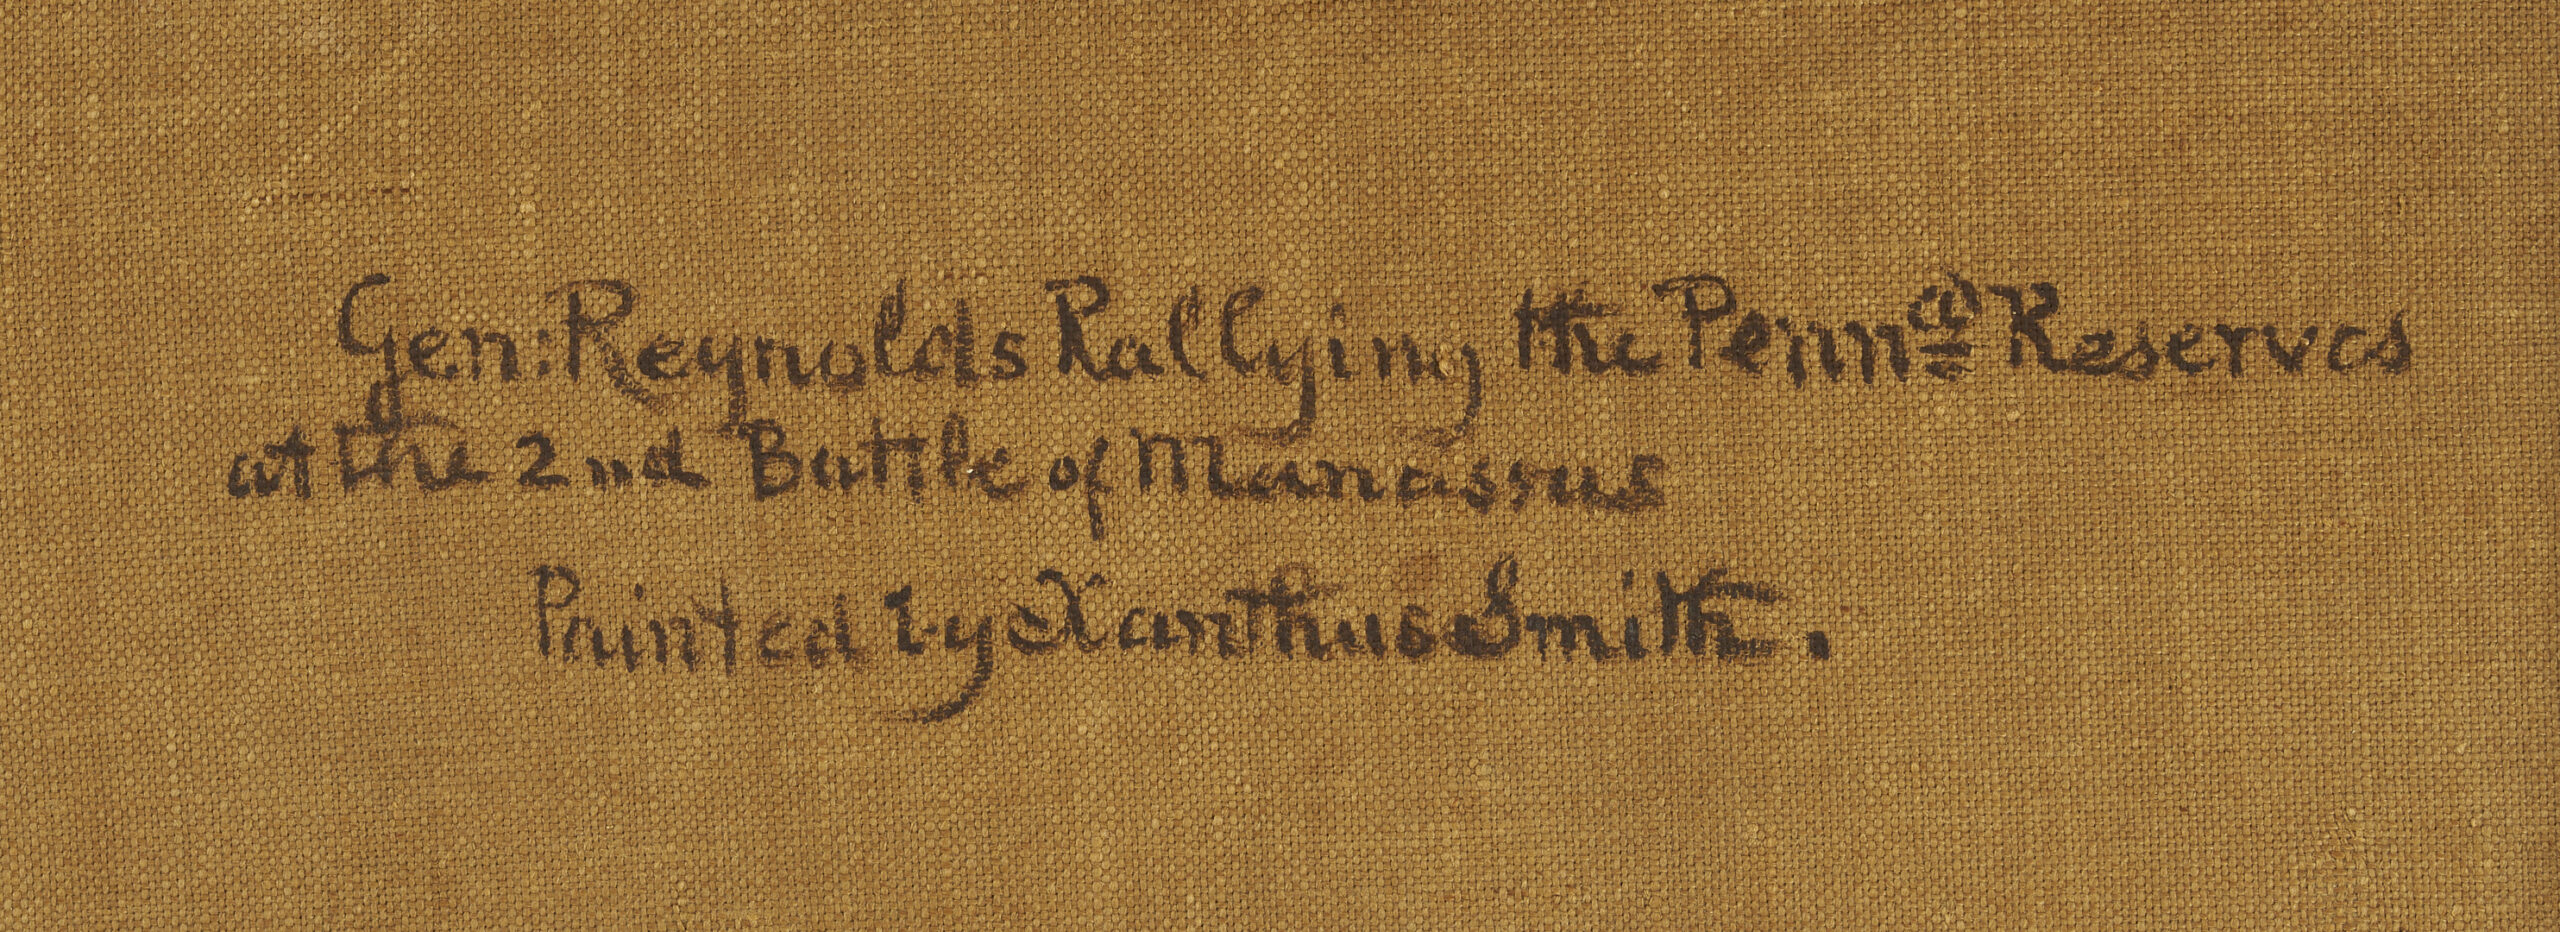 Gen: Reynolds Rallying the Pennª Reserves
at the 2nd Battle of Manassus
Painted by Xanthus Smith.